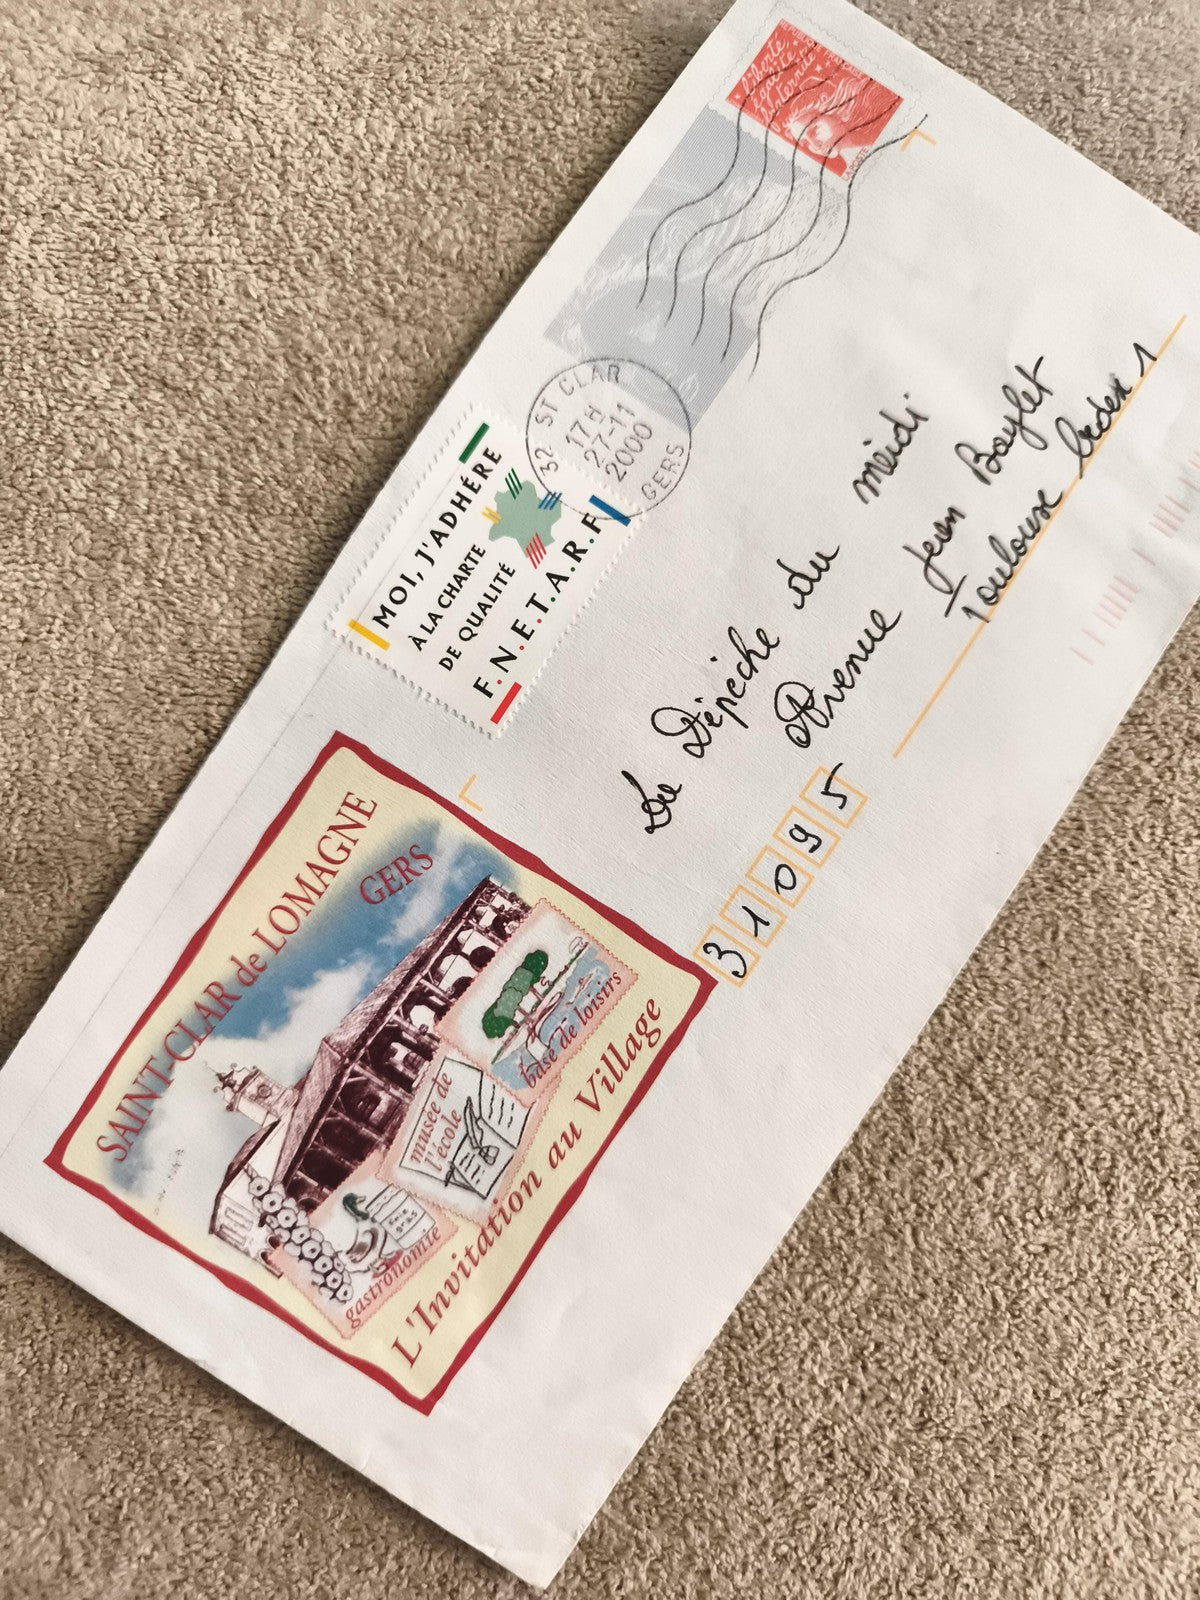 RÉPUBLIQUE FRANÇAISE
Liberté
égalité
fraternité
LA POSTE
32 ST CLAR
17H
27-11
2000
GERS
MOI, J'ADHÈRE
À LA CHARTE
DE QUALITÉ
F.N.E.T.A.R.F
La Dépêche du meidi
Avenue Jean Baylet
31095 Toulouse Cedex 1
SAINT-CLAR de LOMAGNE
GERS
base de loisirs
musée de
l'école
foie
gras
gastronomie
L'Invitation au Village